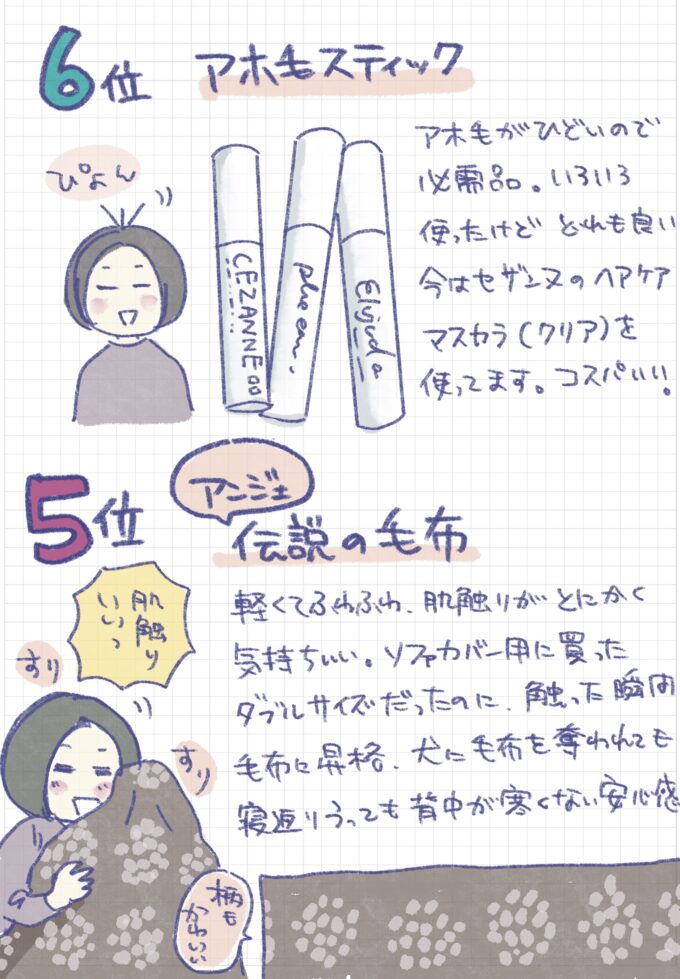 6位 アホ毛スティック
ぴょん
アホ毛がひどいので
必需品。いろいろ
使ったけど どれも良い
今はセザンヌのヘアケア
マスカラ(クリア)を
使ってます。コスパいい。
CEZANNE
plus eau
Elujuda
5位
アンジェ
伝説の毛布
肌触り
いいっ
すり
すり
軽くてふわふわ、肌触りがとにかく
気持ちいい。ソファカバー用に買った
ダブルサイズだったのに、触った瞬間
毛布に昇格、犬に毛布を奪われても
寝返りうっても背中が寒くない安心感
柄も
かわいい